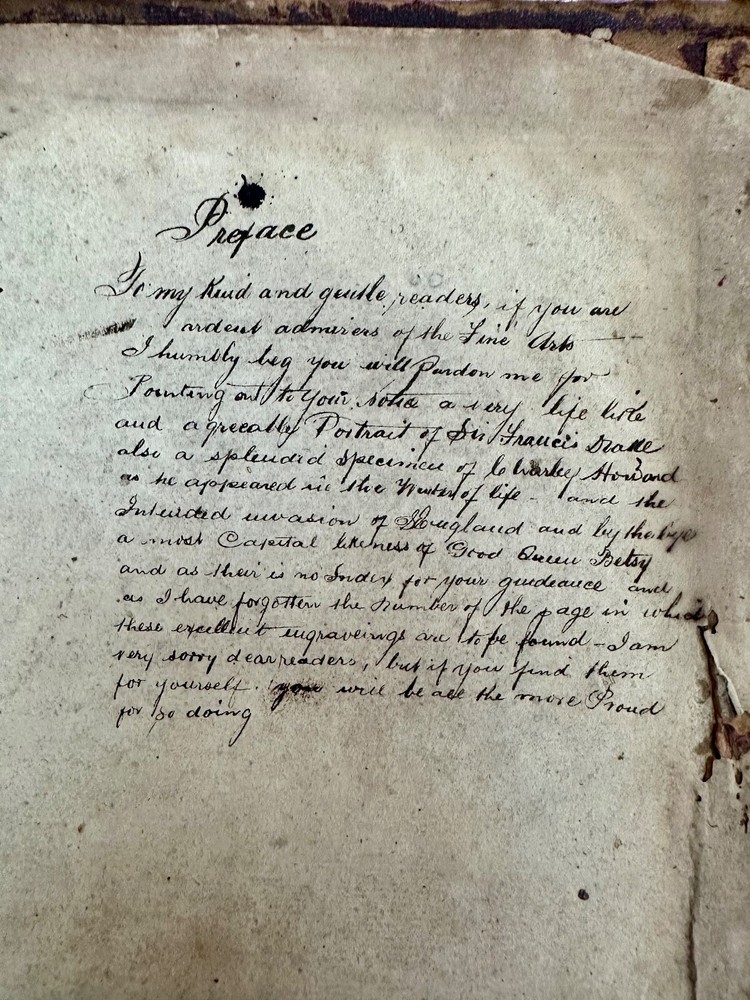 Preface
To my Kind and gentle readers, if you are
ardent admirers of the Fine Arts
I humbly beg you will Pardon me for
Pointing out to your notice a very life like
and agreeable Portrait of Sir Francis Drake
also a splendid specimen of Charley Howard
as he appeared in the Winter of life - and the
Intended invasion of England and by the bye
a most Capital likeness of Good Queen Betsy
and as their is no Index for your guideance and
as I have forgotten the number of the page in which
these excellent engraveings are to be found - I am
very sorry dear readers, but if you find them
for yourself. you will be all the more Proud
for so doing